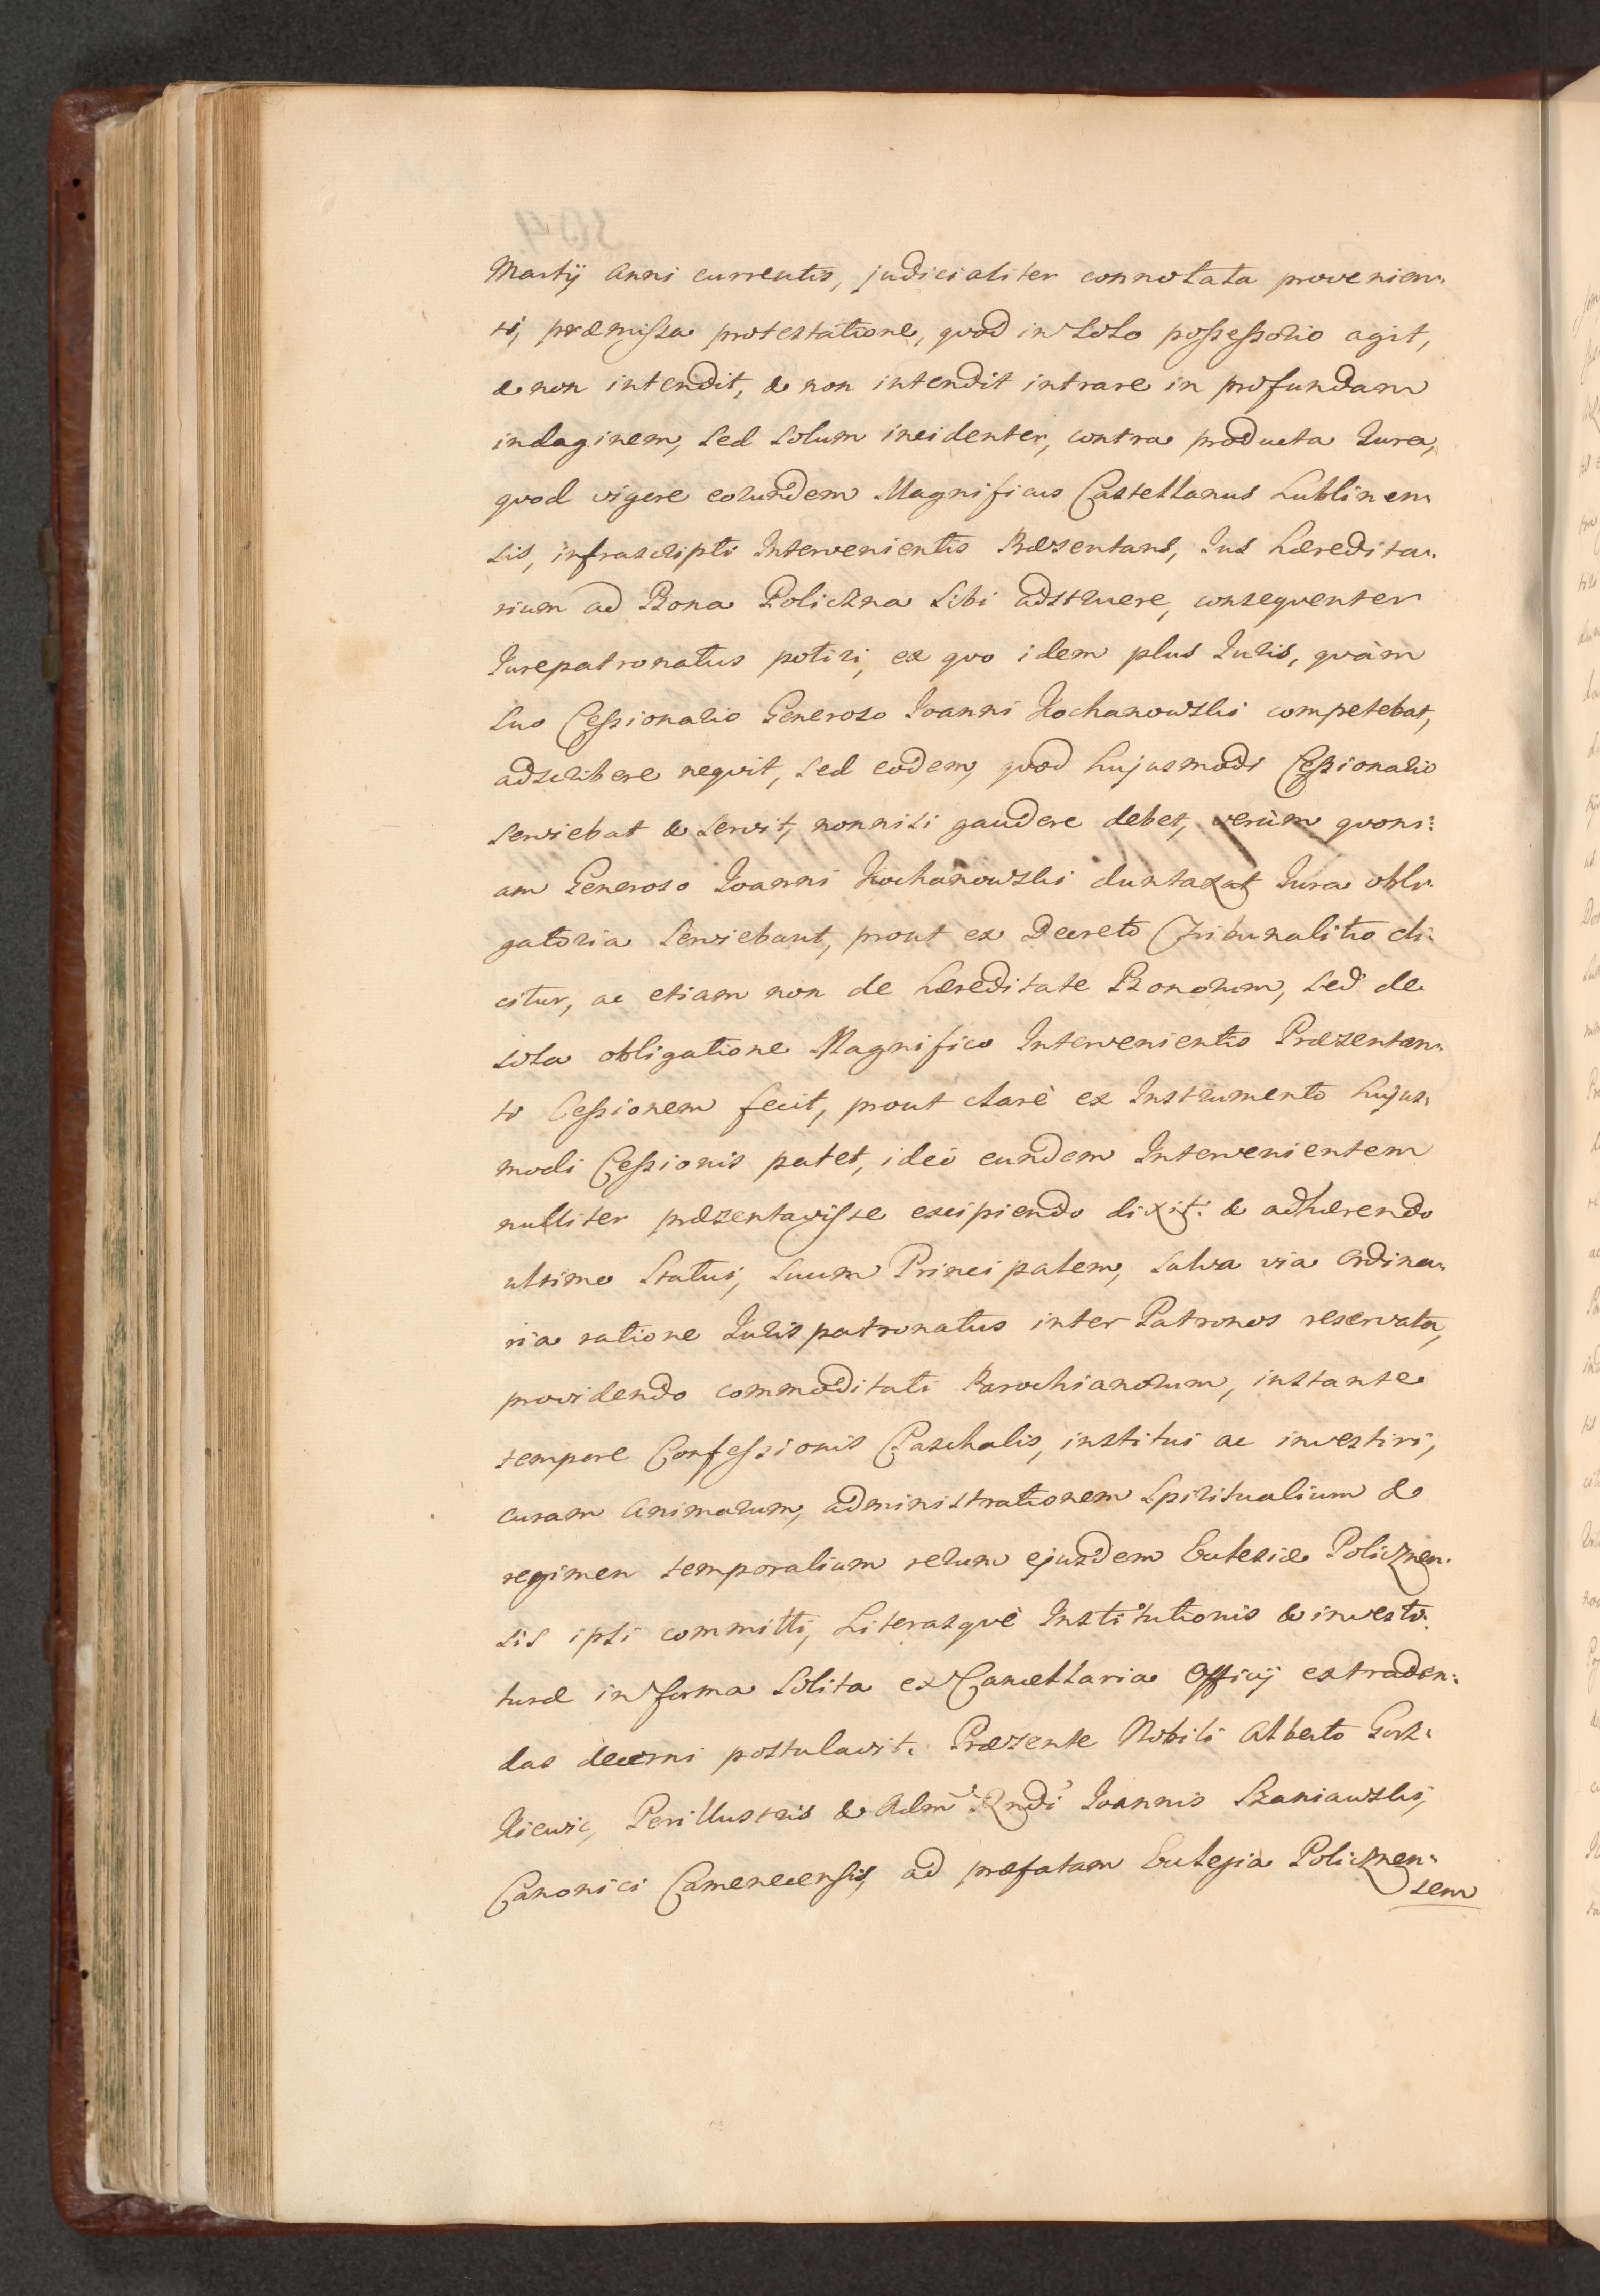 Martij Anni currentis, judicialiter connotata provenien-
ti, præmissa protestatione, quod in solo possessorio agit,
& non intendit, & non intendit intrare in profundam
indaginem, sed solum incidenter, contra producta Jura,
quod vigore eorundem Magnificus Castellanus Lublinen-
sis, infrascripti Intervenientis Præsentans, Jus hæredita-
rium ad Bona Policzna sibi adstruere, consequenter
Jurepatronatus potiri, ex quo idem plus Juris, quàm
suo Cessionario Generoso Joanni Kochanowski competebat,
adscribere nequit, sed eodem, quod hujusmodi Cessionario
serviebat & servit, nonnisi gaudere debet, verùm quoni-
am Generoso Joanni Kochanowski duntaxat Jura obli-
gatoria serviebant, prout ex Decreto Tribunalitio di-
citur, ac etiam non de hæreditate Bonorum, sed de
sola obligatione Magnifico Intervenientis Præsentan-
ti Cessionem fecit, prout clarè ex Instrumento hujus-
modi Cessionis patet, ideò eundem Intervenientem
nulliter præsentavisse excipiendo dixit: & adhærendo
ultimo Statui, suum Principalem, salva via ordina-
ria ratione Jurispatronatus inter Patronos reservata,
providendo commoditati Parochianorum, instante
tempore Confessionis Paschalis, institui ac investiri,
curam Animarum, administrationem Spiritualium &
regimen temporalium rerum ejusdem Ecclesiæ Policznen-
sis ipsi committi, Literasquè Institutionis & investi-
turæ in forma solita ex Cancellaria Officij extraden-
das decerni postulavit. Præsente Nobili Alberto Gorz-
kiewic, Perillustris & Adm Rndi Joannis Szaniawski,
Canonici Camenecensis, ad præfatam Eclesia Policznen-
sem